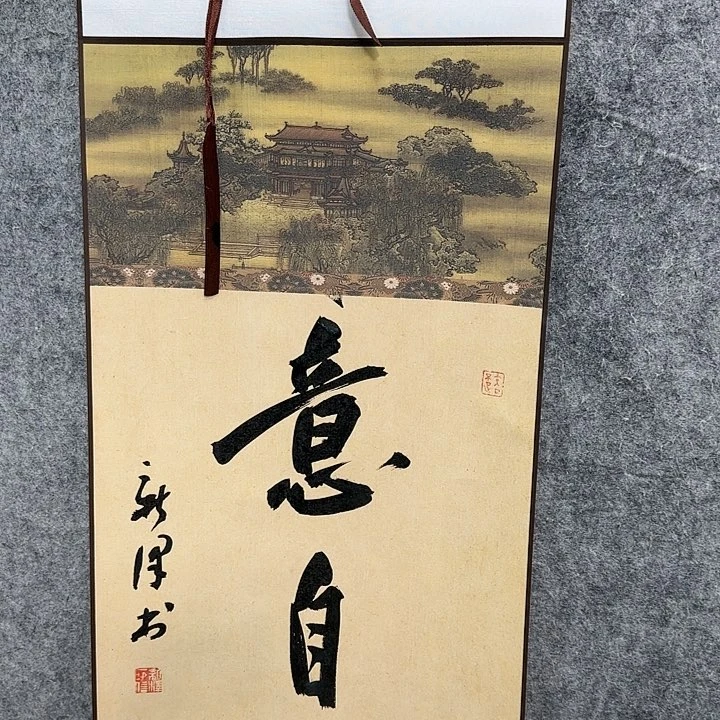 意自
新泽书